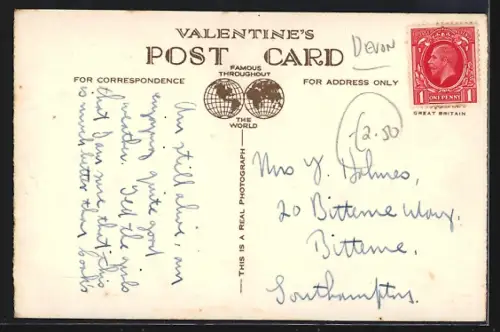 VALENTINE'S
POST CARD
DEVON
FAMOUS
THROUGHOUT
THE
WORLD
FOR CORRESPONDENCE
FOR ADDRESS ONLY
1 ONE PENNY 1
GREAT BRITAIN
£2.50
THIS IS A REAL PHOTOGRAPH
Am still alive, am
enjoying quite good
weather. Tell the girls
that I am sure that this
is much better than
Mrs Y. Holmes,
20 Bitterne Way,
Bitterne,
Southampton.